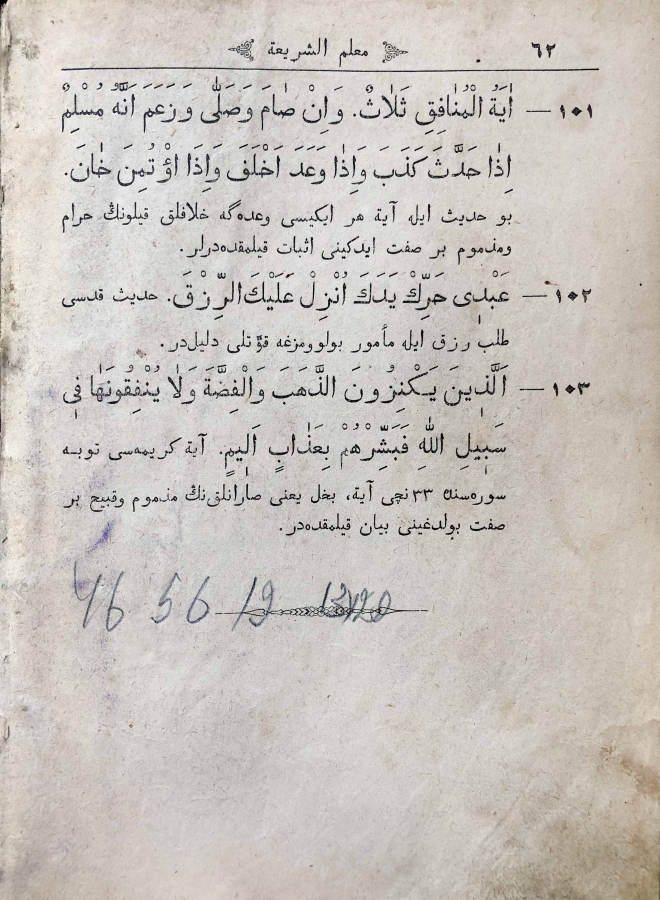 معلم الشريعة ٦٢
١٠١ — اٰيَةُ الْمُنٰافِقِ ثَلٰاثٌ. وَاِنْ صٰامَ وَصَلّٰى وَزَعَمَ اَنَّهُ مُسْلِمٌ
اِذٰا حَدَّثَ كَذَبَ وَاِذٰا وَعَدَ اَخْلَفَ وَاِذَا اؤْتُمِنَ خٰانَ.
بو حديث ايله آية هر ايكيسى وعده‌گه خلافلق قيلونڭ حرام
ومذموم بر صفت ايدكينى اثبات قيلمقده‌درلر.
١٠٢ — عَبْدِى حَرِّكْ يَدَكَ اُنْزِلْ عَلَيْكَ الرِّزْقَ. حديث قدسى
طلب رزق ايله مأمور بولوومزغه قوّتلى دليل‌در.
١٠٣ — اَلَّذِينَ يَكْنِزُونَ الذَّهَبَ وَالْفِضَّةَ وَلٰا يُنْفِقُونَهٰا فِى
سَبِيلِ اللّٰهِ فَبَشِّرْهُمْ بِعَذٰابٍ اَلِيمٍ. آية كريمه‌سى توبه
سوره‌سنڭ ٣٣نچى آية، بخل يعنى صارانلق‌نڭ مذموم وقبيح بر
صفت بولدغينى بيان قيلمقده‌در.
46 56 19